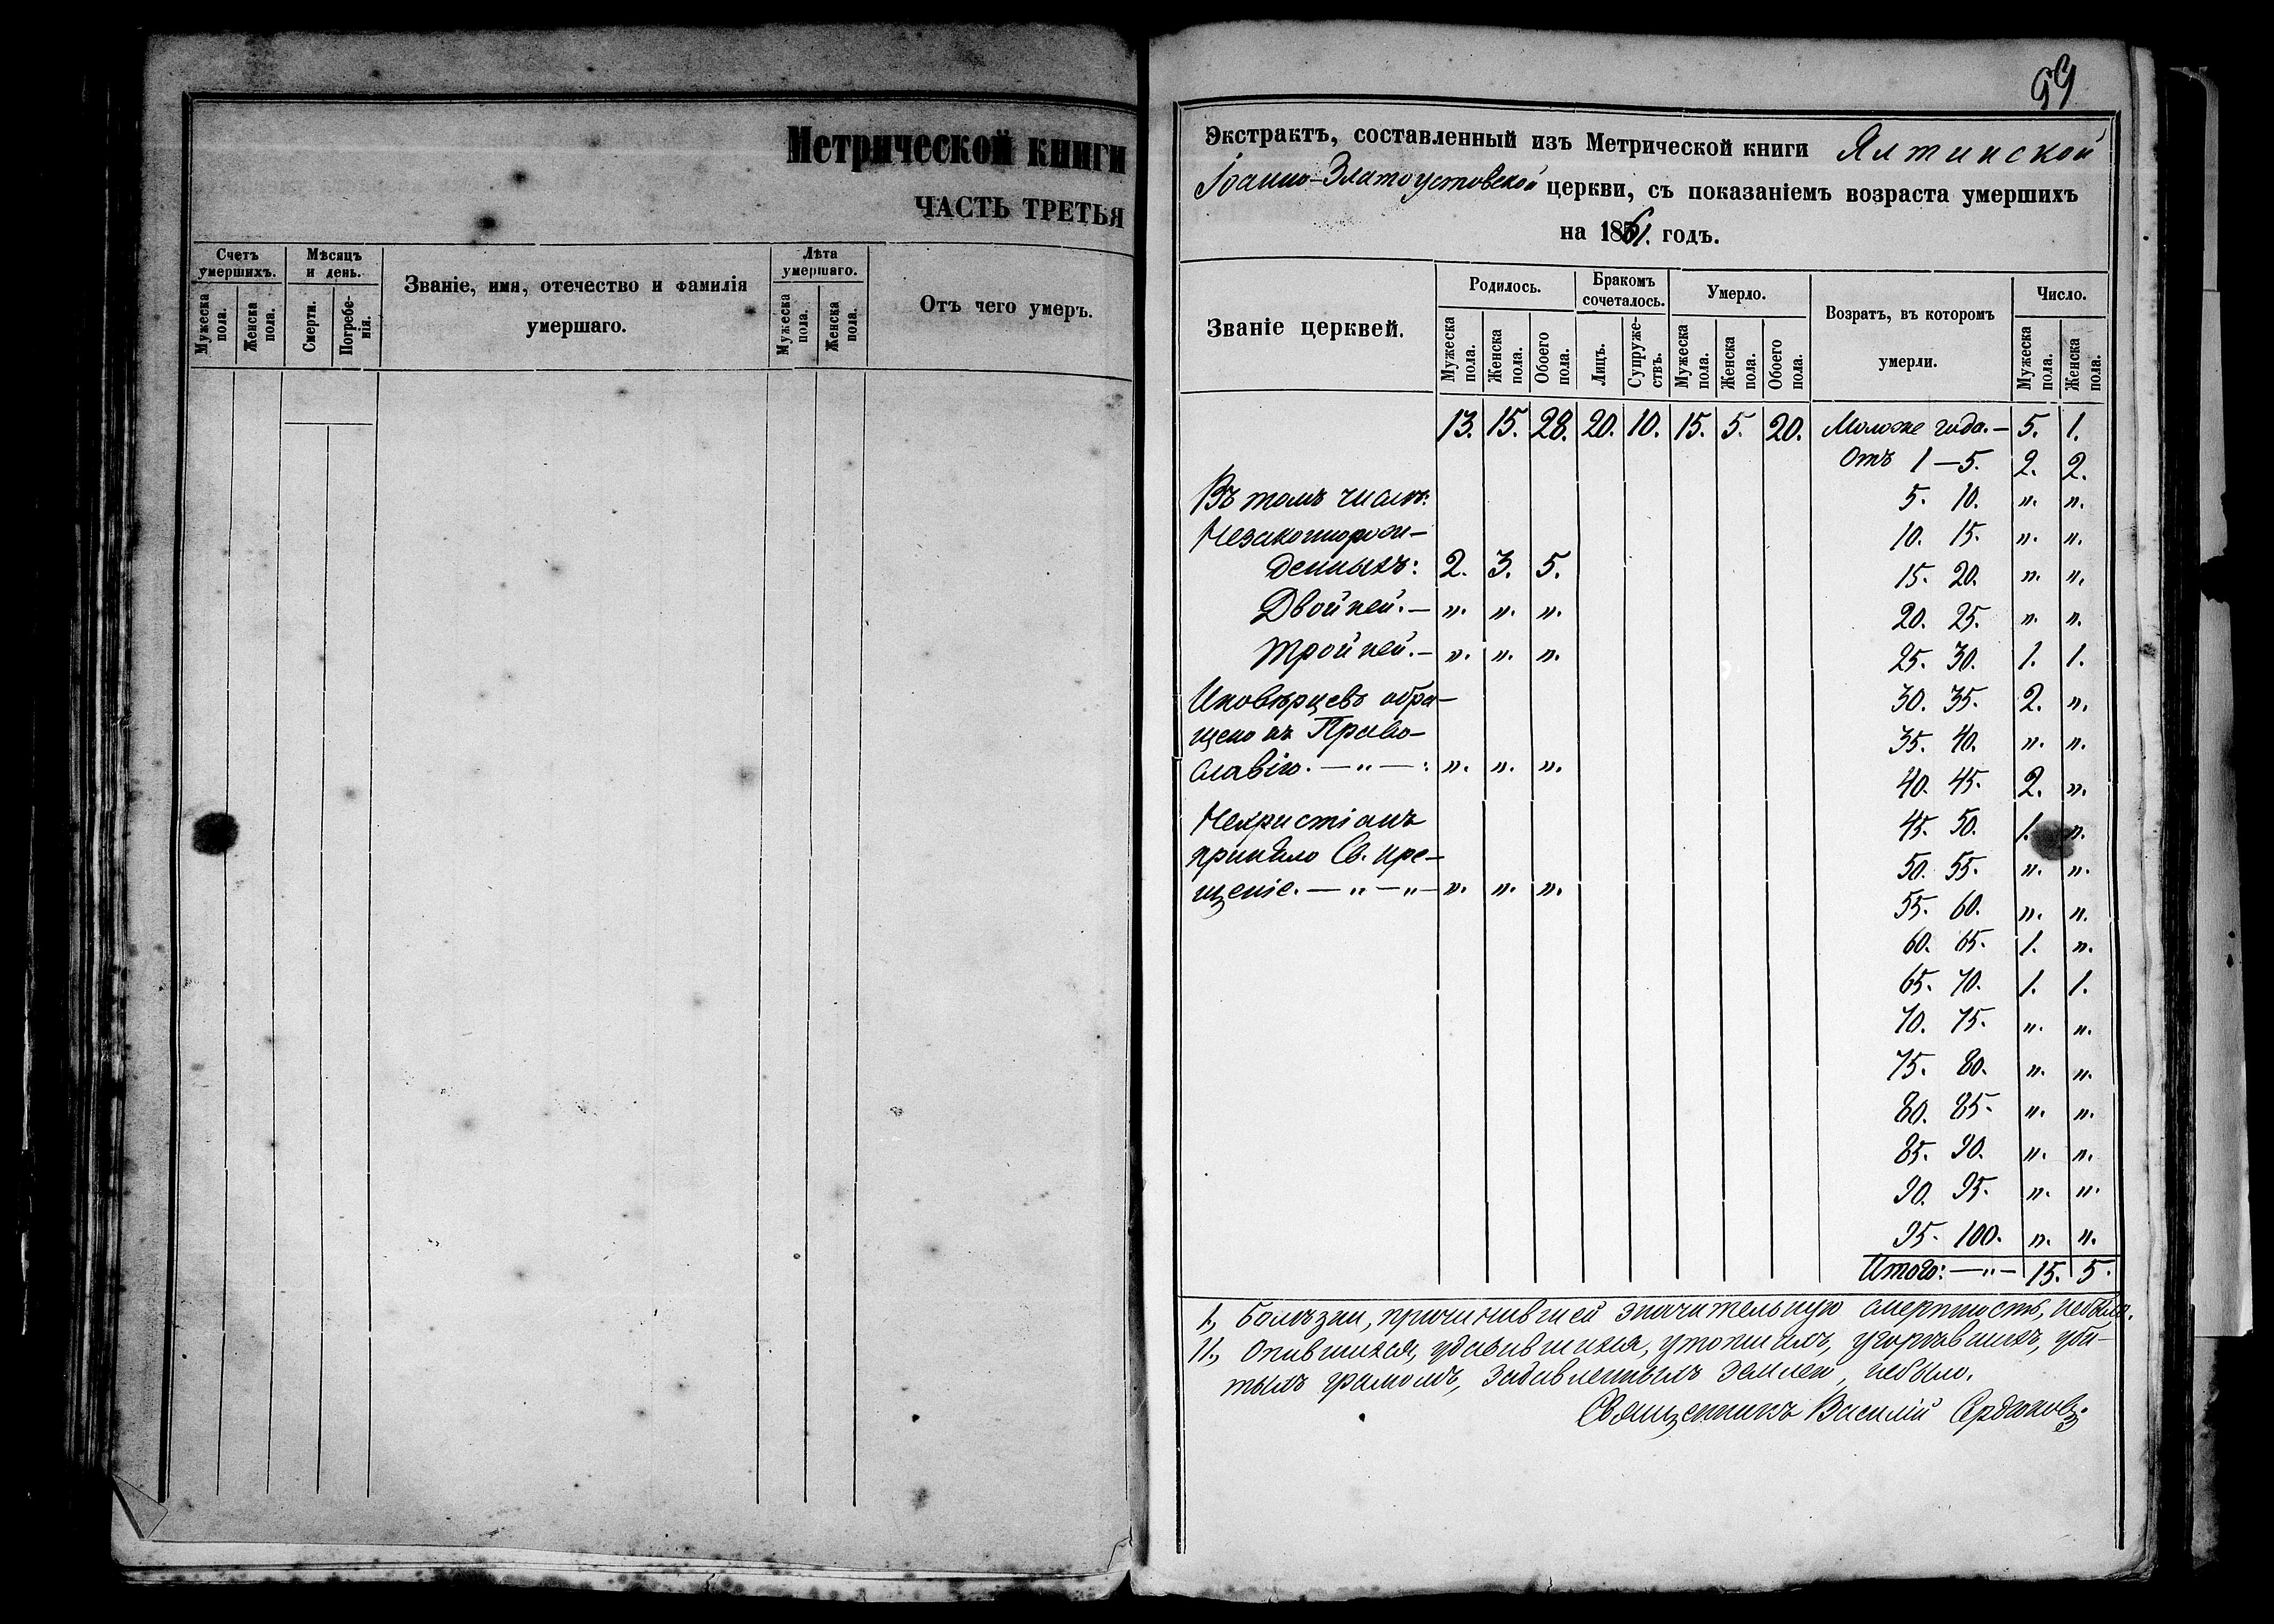 Метрической книги
ЧАСТЬ ТРЕТЬЯ
Счетъ умершихъ.
Мужеска пола.
Женска пола.
Мѣсяцъ и день.
Смерти.
Погребенія.
Званіе, имя, отечество и фамилія
умершаго.
Лѣта умершаго.
Мужеска пола.
Женска пола.
Отъ чего умеръ.
99
Экстрактъ, составленный изъ Метрической книги Ялтинской
Іоанно-Златоустовской церкви, съ показаніемъ возраста умершихъ
на 1861. годъ.
Званіе церквей.
Родилось.
Мужеска пола.
Женска пола.
Обоего пола.
Бракомъ сочеталось.
Лицъ.
Супружествъ.
Умерло.
Мужеска пола.
Женска пола.
Обоего пола.
Возратъ, въ которомъ
умерли.
Число.
Мужеска пола.
Женска пола.
13. 15. 28. 20. 10. 15. 5. 20. Моложе года. — 5. 1.
Отъ 1 — 5. 2. 2.
Въ томъ числѣ: 5. 10. „. „.
Незаконнорож- 10. 15. „. „.
денныхъ: 2. 3. 5. 15. 20. „. „.
Двойней. — „. „. „. 20. 25. „. „.
Тройней. — „. „. „. 25. 30. 1. 1.
Иновѣрцевъ обра- 30. 35. 2. „.
щено къ Право- 35. 40. „. „.
славію. — „ — : „. „. „. 40. 45. 2. „.
Нехристіанъ 45. 50. 1. „.
приняло Св. кре- 50. 55. „. „.
щеніе. — „ — „ — „. „. „. 55. 60. „. „.
60. 65. 1. „.
65. 70. 1. 1.
70. 75. „. „.
75. 80. „. „.
80. 85. „. „.
85. 90. „. „.
90. 95. „. „.
95. 100. „. „.
Итого: — „ — 15. 5.
I., Болѣзни, причинившей значительную смертность, небыло.
II., Опившихся, удавившихся, утопшихъ, угорѣвшихъ, уби-
тыхъ громомъ, задавленныхъ землею, небыло.
Священникъ Василій